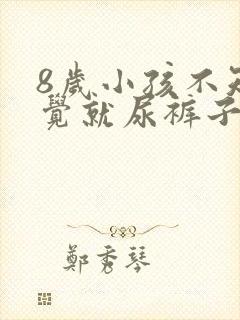 8歲小孩不知
覺就尿裤子
鄭秀琴